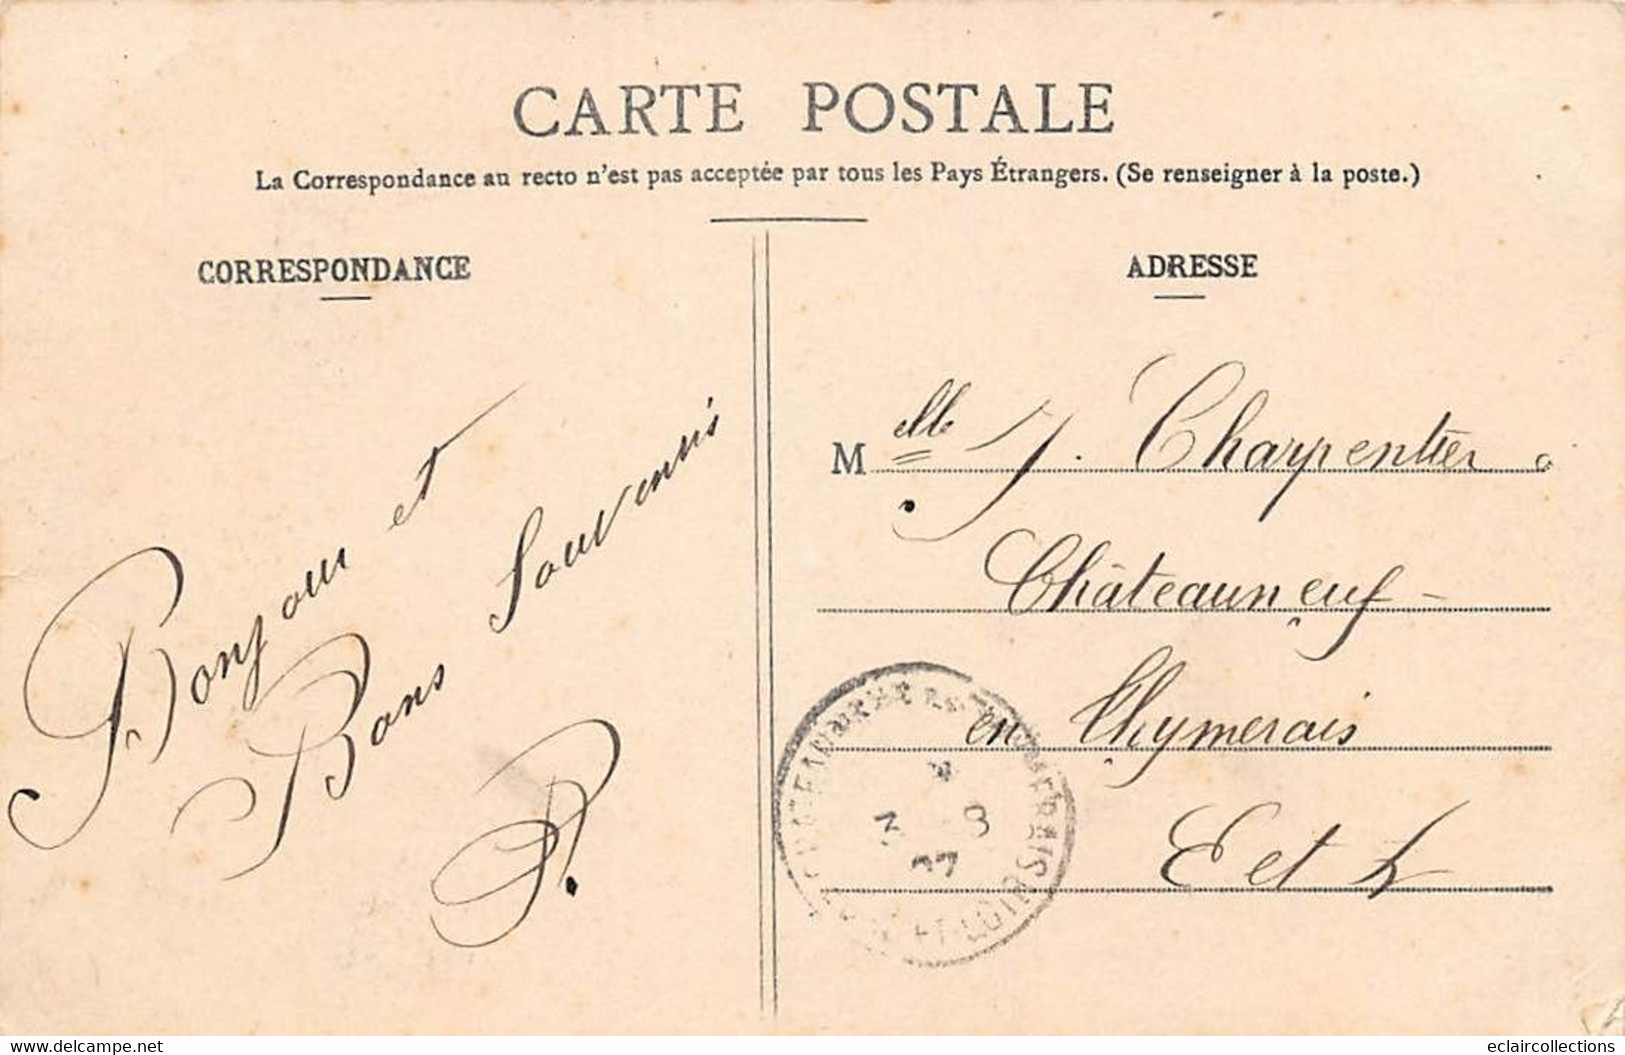 CARTE POSTALE
La Correspondance au recto n'est pas acceptée par tous les Pays Étrangers. (Se renseigner à la poste.)
CORRESPONDANCE
Bonjour et
Bons Souvenirs
P.
ADRESSE
Melle J. Charpentier à
Châteauneuf-
en Thymerais
E et L
3 -8
07
ET-LOIR
delcampe.net
eclaircollections